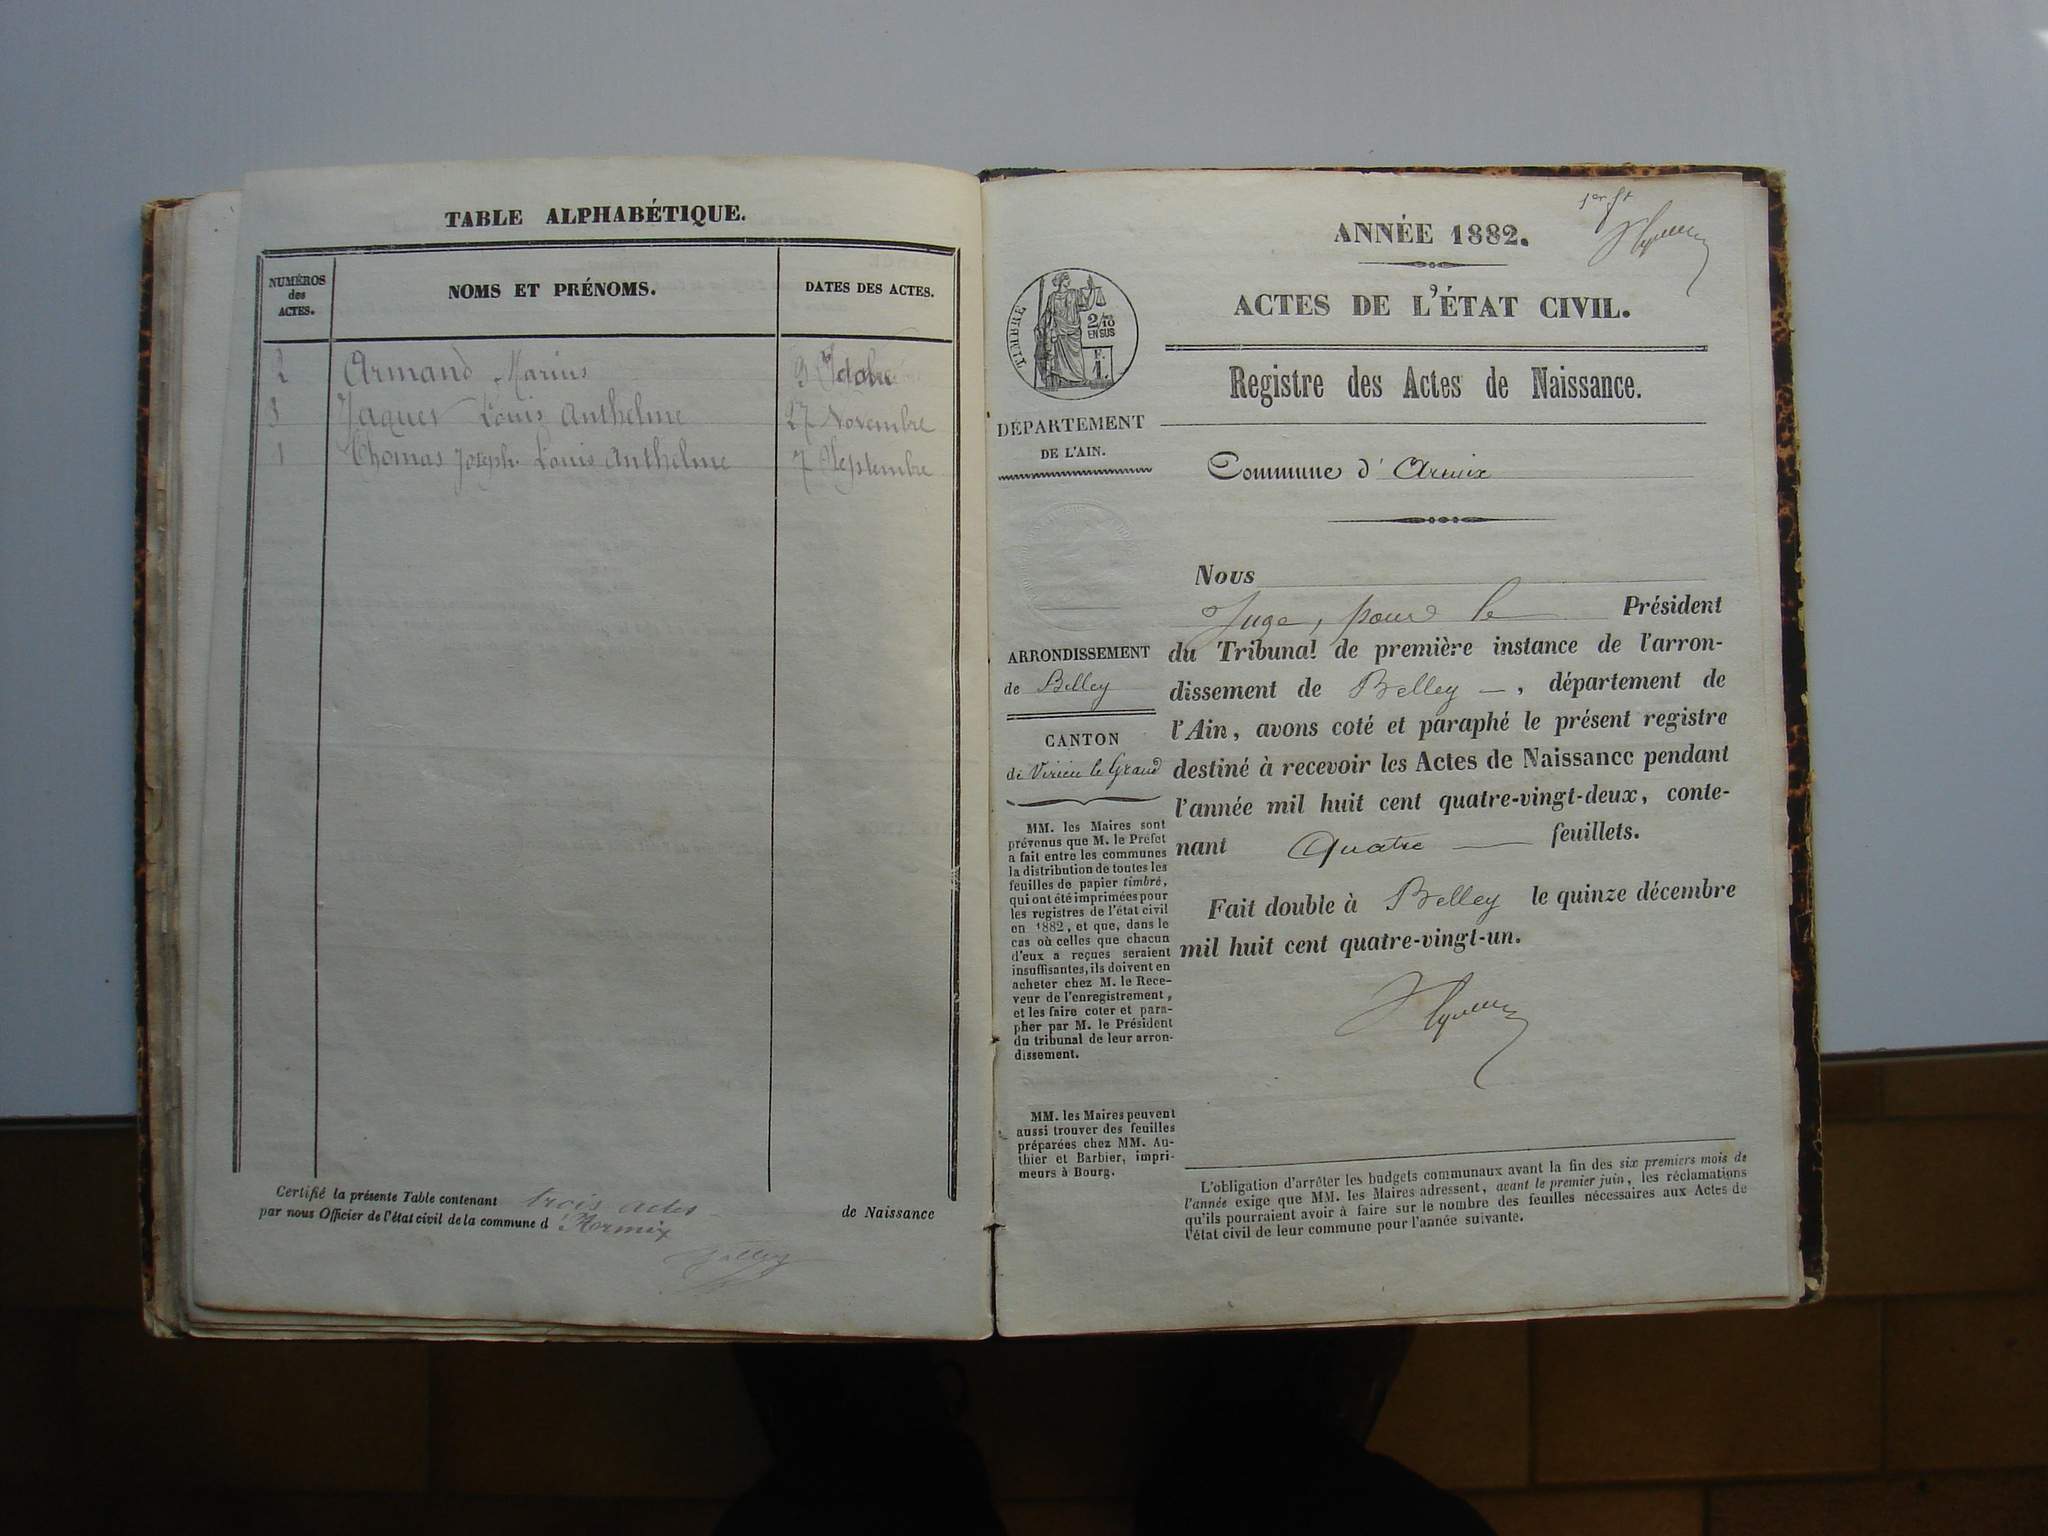 TABLE ALPHABÉTIQUE.
NUMÉROS
des
ACTES.
NOMS ET PRÉNOMS.
DATES DES ACTES.
2 Armand Marius 9 Octobre
3 Jaques Louis Anthelme 27 Novembre
1 Thomas Joseph Louis Anthelme 7 Septembre
Certifié la présente Table contenant trois actes de Naissance
par nous Officier de l'état civil de la commune d'Armix
1er ft
ANNÉE 1882.
ACTES DE L'ÉTAT CIVIL.
Registre des Actes de Naissance.
TIMBRE
2/10
EN SUS
F.
1.
DÉPARTEMENT
DE L'AIN.
Commune d'Armix
ARRONDISSEMENT
de Belley
CANTON
de Virieu le Grand
MM. les Maires sont
prévenus que M. le Préfet
a fait entre les communes
la distribution de toutes les
feuilles de papier timbré,
qui ont été imprimées pour
les registres de l'état civil
en 1882, et que, dans le
cas où celles que chacun
d'eux a reçues seraient
insuffisantes, ils doivent en
acheter chez M. le Rece-
veur de l'enregistrement,
et les faire coter et para-
pher par M. le Président
du tribunal de leur arron-
dissement.
MM. les Maires peuvent
aussi trouver des feuilles
préparées chez MM. Au-
thier et Barbier, impri-
meurs à Bourg.
Nous
Juge, pour le Président
du Tribunal de première instance de l'arron-
dissement de Belley —, département de
l'Ain, avons coté et paraphé le présent registre
destiné à recevoir les Actes de Naissance pendant
l'année mil huit cent quatre-vingt-deux, conte-
nant Quatre — feuillets.
Fait double à Belley le quinze décembre
mil huit cent quatre-vingt-un.
L'obligation d'arrêter les budgets communaux avant la fin des six premiers mois de
l'année exige que MM. les Maires adressent, avant le premier juin, les réclamations
qu'ils pourraient avoir à faire sur le nombre des feuilles nécessaires aux Actes de
l'état civil de leur commune pour l'année suivante.